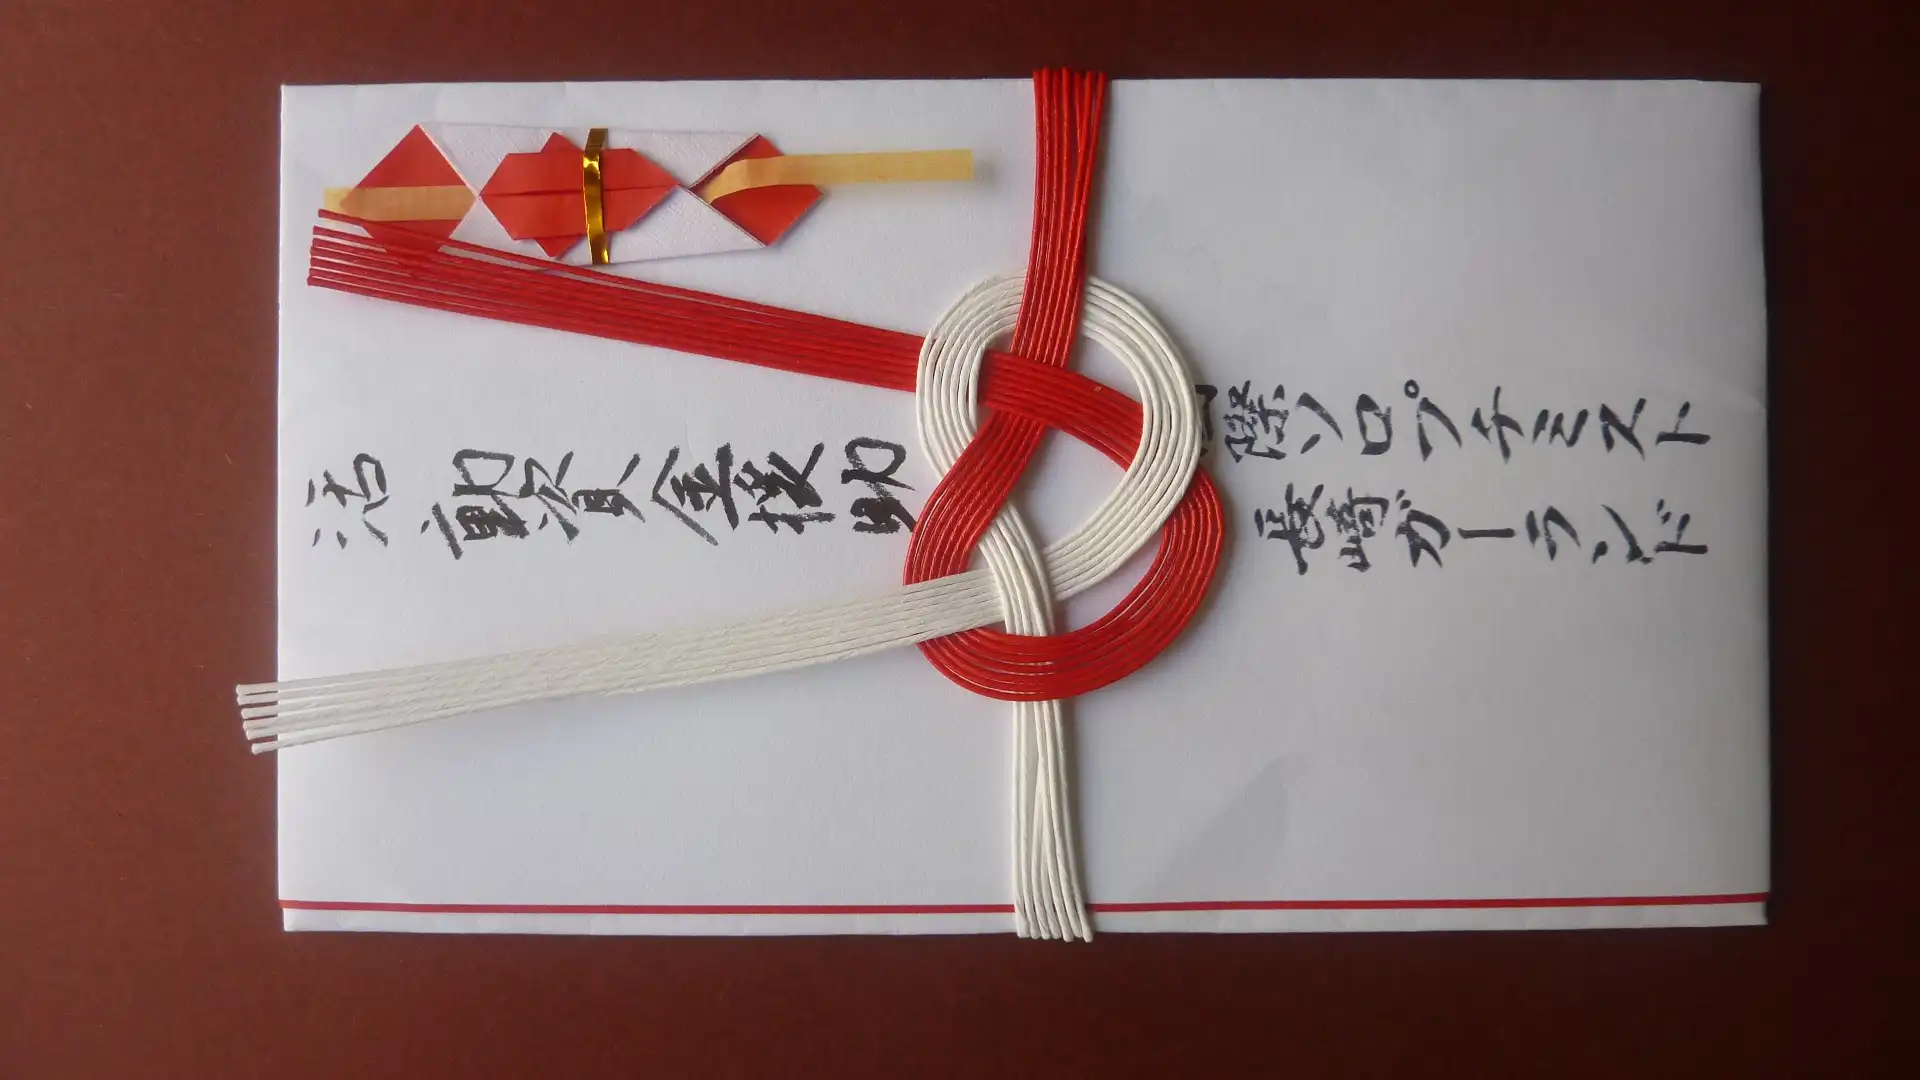 活動資金援助
国際ソロプチミスト
長崎ガーランド